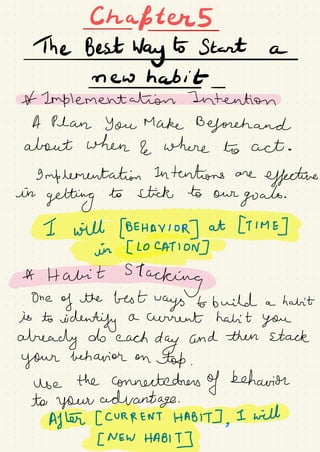 Chapter 5
The Best Way to Start a
new habit
* Implementation Intention
A Plan You Make Beforehand
about when & where to act.
Implementation Intentions are effective
in getting to stick to our goals.
I will [BEHAVIOR] at [TIME]
in [LOCATION]
* Habit Stacking
One of the best ways to build a habit
is to identify a current habit you
already do each day and then stack
your behavior on top.
Use the connectedness of behavior
to your advantage.
After [CURRENT HABIT], I will
[NEW HABIT]